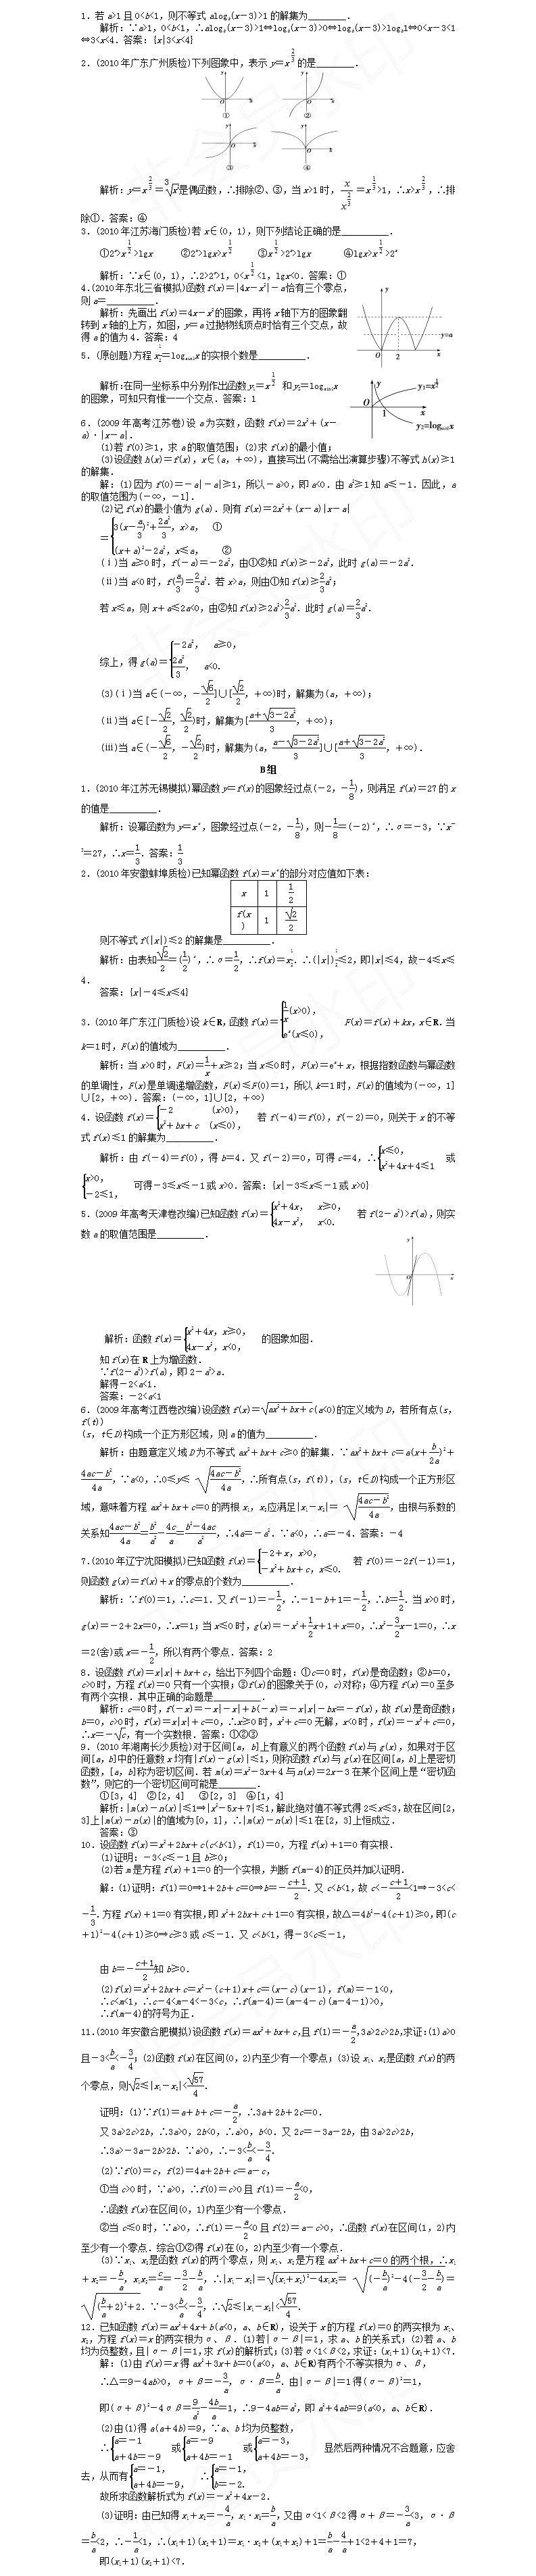 1. 若 a>1 且 0<b<1，则不等式 alog_b(x－3)>1 的解集为________．
解析：∵a>1，0<b<1，∴alog_b(x－3)>1⇔log_b(x－3)>0⇔log_b(x－3)>log_b1⇔0<x－3<1
⇔3<x<4．答案：{x|3<x<4}
2．(2010 年广东广州质检)下列图象中，表示 y＝x^{2/3} 的是________．
① ②
③ ④
解析：y＝x^{2/3}＝∛x²是偶函数，∴排除②、③，当 x>1 时，x/x^{2/3}＝x^{1/3}>1，∴x>x^{2/3}，∴排
除①．答案：④
3．(2010 年江苏海门质检)若 x∈(0，1)，则下列结论正确的是__________．
①2^x>x^{1/2}>lgx ②2^x>lgx>x^{1/2} ③x^{1/2}>2^x>lgx ④lgx>x^{1/2}>2^x
解析：∵x∈(0，1)，∴2>2^x>1，0<x^{1/2}<1，lgx<0．答案：①
4．(2010 年东北三省模拟)函数 f(x)＝|4x－x²|－a 恰有三个零点，
则 a＝__________．
解析：先画出 f(x)＝4x－x² 的图象，再将 x 轴下方的图象翻
转到 x 轴的上方，如图，y＝a 过抛物线顶点时恰有三个交点，故
得 a 的值为 4．答案：4
5．(原创题)方程 x^{1/2}＝log_{sin1}x 的实根个数是__________．
解析：在同一坐标系中分别作出函数 y₁＝x^{1/2} 和 y₂＝log_{sin1}x
的图象，可知只有惟一一个交点．答案：1
6．(2009 年高考江苏卷)设 a 为实数，函数 f(x)＝2x²＋(x－
a)·|x－a|．
(1)若 f(0)≥1，求 a 的取值范围；(2)求 f(x)的最小值；
(3)设函数 h(x)＝f(x)，x∈(a，＋∞)，直接写出(不需给出演算步骤)不等式 h(x)≥1
的解集．
解：(1)因为 f(0)＝－a|－a|≥1，所以－a>0，即 a<0．由 a²≥1 知 a≤－1．因此，a
的取值范围为(－∞，－1]．
(2)记 f(x)的最小值为 g(a)．则有 f(x)＝2x²＋(x－a)|x－a|
＝{3(x－a/3)²＋2a²/3，x>a， ①
(x＋a)²－2a²，x≤a， ②
(ⅰ)当 a≥0 时，f(－a)＝－2a²，由①②知 f(x)≥－2a²，此时 g(a)＝－2a²．
(ⅱ)当 a<0 时，f(a/3)＝2/3a²．若 x>a，则由①知 f(x)≥2/3a²；
若 x≤a，则 x＋a≤2a<0，由②知 f(x)≥2a²>2/3a²．此时 g(a)＝2/3a²．
综上，得 g(a)＝{－2a²， a≥0，
2a²/3， a<0．
(3)(ⅰ)当 a∈(－∞，－√6/2]∪[√2/2，＋∞)时，解集为(a，＋∞)；
(ⅱ)当 a∈[－√2/2，√2/2)时，解集为[(a＋√(3－2a²))/3，＋∞)；
(ⅲ)当 a∈(－√6/2，－√2/2)时，解集为(a，(a－√(3－2a²))/3]∪[(a＋√(3－2a²))/3，＋∞)．
B 组
1．(2010 年江苏无锡模拟)幂函数 y＝f(x)的图象经过点(－2，－1/8)，则满足 f(x)＝27 的 x
的值是__________．
解析：设幂函数为 y＝x^α，图象经过点(－2，－1/8)，则－1/8＝(－2)^α，∴α＝－3，∵x^－
³＝27，∴x＝1/3．答案：1/3
2．(2010 年安徽蚌埠质检)已知幂函数 f(x)＝x^α的部分对应值如下表：
x 1 1/2
f(x) 1 √2/2
则不等式 f(|x|)≤2 的解集是__________．
解析：由表知√2/2＝(1/2)^α，∴α＝1/2，∴f(x)＝x^{1/2}．∴(|x|)^{1/2}≤2，即|x|≤4，故－4≤x≤
4．
答案：{x|－4≤x≤4}
3．(2010 年广东江门质检)设 k∈R，函数 f(x)＝{1/x(x>0)，e^x(x≤0)， F(x)＝f(x)＋kx，x∈R．当
k＝1 时，F(x)的值域为__________．
解析：当 x>0 时，F(x)＝1/x＋x≥2；当 x≤0 时，F(x)＝e^x＋x，根据指数函数与幂函数
的单调性，F(x)是单调递增函数，F(x)≤F(0)＝1，所以 k＝1 时，F(x)的值域为(－∞，1]
∪[2，＋∞)．答案：(－∞，1]∪[2，＋∞)
4．设函数 f(x)＝{－2 (x>0)，x²＋bx＋c (x≤0)， 若 f(－4)＝f(0)，f(－2)＝0，则关于 x 的不等
式 f(x)≤1 的解集为__________．
解析：由 f(－4)＝f(0)，得 b＝4．又 f(－2)＝0，可得 c＝4，∴{x≤0，x²＋4x＋4≤1 或
{x>0，－2≤1， 可得－3≤x≤－1 或 x>0．答案：{x|－3≤x≤－1 或 x>0}
5．(2009 年高考天津卷改编)已知函数 f(x)＝{x²＋4x， x≥0，4x－x²， x<0． 若 f(2－a²)>f(a)，则实
数 a 的取值范围是__________．
解析：函数 f(x)＝{x²＋4x，x≥0，4x－x²，x<0， 的图象如图．
知 f(x)在 R 上为增函数．
∵f(2－a²)>f(a)，即 2－a²>a．
解得－2<a<1．
答案：－2<a<1
6．(2009 年高考江西卷改编)设函数 f(x)＝√(ax²＋bx＋c)(a<0)的定义域为 D，若所有点(s，
f(t))
(s，t∈D)构成一个正方形区域，则 a 的值为__________．
解析：由题意定义域 D 为不等式 ax²＋bx＋c≥0 的解集．∵ax²＋bx＋c＝a(x＋b/2a)²＋
(4ac－b²)/4a，∵a<0，∴0≤y≤√((4ac－b²)/4a)，∴所有点(s，f(t))，(s，t∈D)构成一个正方形区
域，意味着方程 ax²＋bx＋c＝0 的两根 x₁，x₂应满足|x₁－x₂|＝√((4ac－b²)/4a)，由根与系数的
关系知(4ac－b²)/4a＝b²/a²－4c/a＝(b²－4ac)/a²，∴4a＝－a²．∵a<0，∴a＝－4．答案：－4
7．(2010 年辽宁沈阳模拟)已知函数 f(x)＝{－2＋x，x>0，－x²＋bx＋c，x≤0． 若 f(0)＝－2f(－1)＝1，
则函数 g(x)＝f(x)＋x 的零点的个数为__________．
解析：∵f(0)＝1，∴c＝1．又 f(－1)＝－1/2，∴－1－b＋1＝－1/2，∴b＝1/2．当 x>0 时，
g(x)＝－2＋2x＝0，∴x＝1；当 x≤0 时，g(x)＝－x²＋1/2x＋1＋x＝0，∴x²－3/2x－1＝0，∴x
＝2(舍)或 x＝－1/2，所以有两个零点．答案：2
8．设函数 f(x)＝x|x|＋bx＋c，给出下列四个命题：①c＝0 时，f(x)是奇函数；②b＝0，
c>0 时，方程 f(x)＝0 只有一个实根；③f(x)的图象关于(0，c)对称；④方程 f(x)＝0 至多
有两个实根．其中正确的命题是__________．
解析：c＝0 时，f(－x)＝－x|－x|＋b(－x)＝－x|x|－bx＝－f(x)，故 f(x)是奇函数；
b＝0，c>0 时，f(x)＝x|x|＋c＝0，∴x≥0 时，x²＋c＝0 无解，x<0 时，f(x)＝－x²＋c＝0，
∴x＝－√c，有一个实数根．答案：①②③
9．(2010 年湖南长沙质检)对于区间[a，b]上有意义的两个函数 f(x)与 g(x)，如果对于区
间[a，b]中的任意数 x 均有|f(x)－g(x)|≤1，则称函数 f(x)与 g(x)在区间[a，b]上是密切
函数，[a，b]称为密切区间．若 m(x)＝x²－3x＋4 与 n(x)＝2x－3 在某个区间上是“密切函
数”，则它的一个密切区间可能是________．
①[3，4] ②[2，4] ③[2，3] ④[1，4]
解析：|m(x)－n(x)|≤1⇒|x²－5x＋7|≤1，解此绝对值不等式得 2≤x≤3，故在区间[2，
3]上|m(x)－n(x)|的值域为[0，1]，∴|m(x)－n(x)|≤1 在[2，3]上恒成立．
答案：③
10．设函数 f(x)＝x²＋2bx＋c(c<b<1)，f(1)＝0，方程 f(x)＋1＝0 有实根．
(1)证明：－3<c≤－1 且 b≥0；
(2)若 m 是方程 f(x)＋1＝0 的一个实根，判断 f(m－4)的正负并加以证明．
解：(1)证明：f(1)＝0⇒1＋2b＋c＝0⇒b＝－(c＋1)/2．又 c<b<1，故 c<－(c＋1)/2<1⇒－3<c<
－1/3．方程 f(x)＋1＝0 有实根，即 x²＋2bx＋c＋1＝0 有实根，故△＝4b²－4(c＋1)≥0，即(c
＋1)²－4(c＋1)≥0⇒c≥3 或 c≤－1．又 c<b<1，得－3<c≤－1，
由 b＝－(c＋1)/2知 b≥0．
(2)f(x)＝x²＋2bx＋c＝x²－(c＋1)x＋c＝(x－c)(x－1)，f(m)＝－1<0，
∴c<m<1，∴c－4<m－4<－3<c，∴f(m－4)＝(m－4－c)(m－4－1)>0，
∴f(m－4)的符号为正．
11．(2010 年安徽合肥模拟)设函数 f(x)＝ax²＋bx＋c，且 f(1)＝－a/2，3a>2c>2b，求证：(1)a>0
且－3<b/a<－3/4；(2)函数 f(x)在区间(0，2)内至少有一个零点；(3)设 x₁、x₂是函数 f(x)的两
个零点，则√2≤|x₁－x₂|<√57/4．
证明：(1)∵f(1)＝a＋b＋c＝－a/2，∴3a＋2b＋2c＝0．
又 3a>2c>2b，∴3a>0，2b<0，∴a>0，b<0．又 2c＝－3a－2b，由 3a>2c>2b，
∴3a>－3a－2b>2b．∵a>0，∴－3<b/a<－3/4．
(2)∵f(0)＝c，f(2)＝4a＋2b＋c＝a－c，
①当 c>0 时，∵a>0，∴f(0)＝c>0 且 f(1)＝－a/2<0，
∴函数 f(x)在区间(0，1)内至少有一个零点．
②当 c≤0 时，∵a>0，∴f(1)＝－a/2<0 且 f(2)＝a－c>0，∴函数 f(x)在区间(1，2)内
至少有一个零点．综合①②得 f(x)在(0，2)内至少有一个零点．
(3)∵x₁、x₂是函数 f(x)的两个零点，则 x₁、x₂是方程 ax²＋bx＋c＝0 的两个根，∴x₁
＋x₂＝－b/a，x₁x₂＝c/a＝－3/2－b/a，∴|x₁－x₂|＝√((x₁＋x₂)²－4x₁x₂)＝√((－b/a)²－4(－3/2－b/a))＝
√((b/a＋2)²＋2)．∵－3<b/a<－3/4，∴√2≤|x₁－x₂|<√57/4．
12．已知函数 f(x)＝ax²＋4x＋b(a<0，a、b∈R)，设关于 x 的方程 f(x)＝0 的两实根为 x₁、
x₂，方程 f(x)＝x 的两实根为 α、β．(1)若|α－β|＝1，求 a、b 的关系式；(2)若 a、b
均为负整数，且|α－β|＝1，求 f(x)的解析式；(3)若 α<1<β<2，求证：(x₁＋1)(x₂＋1)<7．
解：(1)由 f(x)＝x 得 ax²＋3x＋b＝0(a<0，a、b∈R)有两个不等实根为 α、β，
∴△＝9－4ab>0，α＋β＝－3/a，α·β＝b/a．由|α－β|＝1 得(α－β)²＝1，
即(α＋β)²－4αβ＝9/a²－4b/a＝1，∴9－4ab＝a²，即 a²＋4ab＝9(a<0，a、b∈R)．
(2)由(1)得 a(a＋4b)＝9，∵a、b 均为负整数，
∴{a＝－1，a＋4b＝－9 或{a＝－9，a＋4b＝－1 或{a＝－3，a＋4b＝－3， 显然后两种情况不合题意，应舍
去，从而有{a＝－1，a＋4b＝－9， ∴{a＝－1，b＝－2．
故所求函数解析式为 f(x)＝－x²＋4x－2．
(3)证明：由已知得 x₁＋x₂＝－4/a，x₁·x₂＝b/a，又由 α<1<β<2 得 α＋β＝－3/a<3，α·β
＝b/a<2，∴－1/a<1，∴(x₁＋1)(x₂＋1)＝x₁·x₂＋(x₁＋x₂)＋1＝b/a－4/a＋1<2＋4＋1＝7，
即(x₁＋1)(x₂＋1)<7．